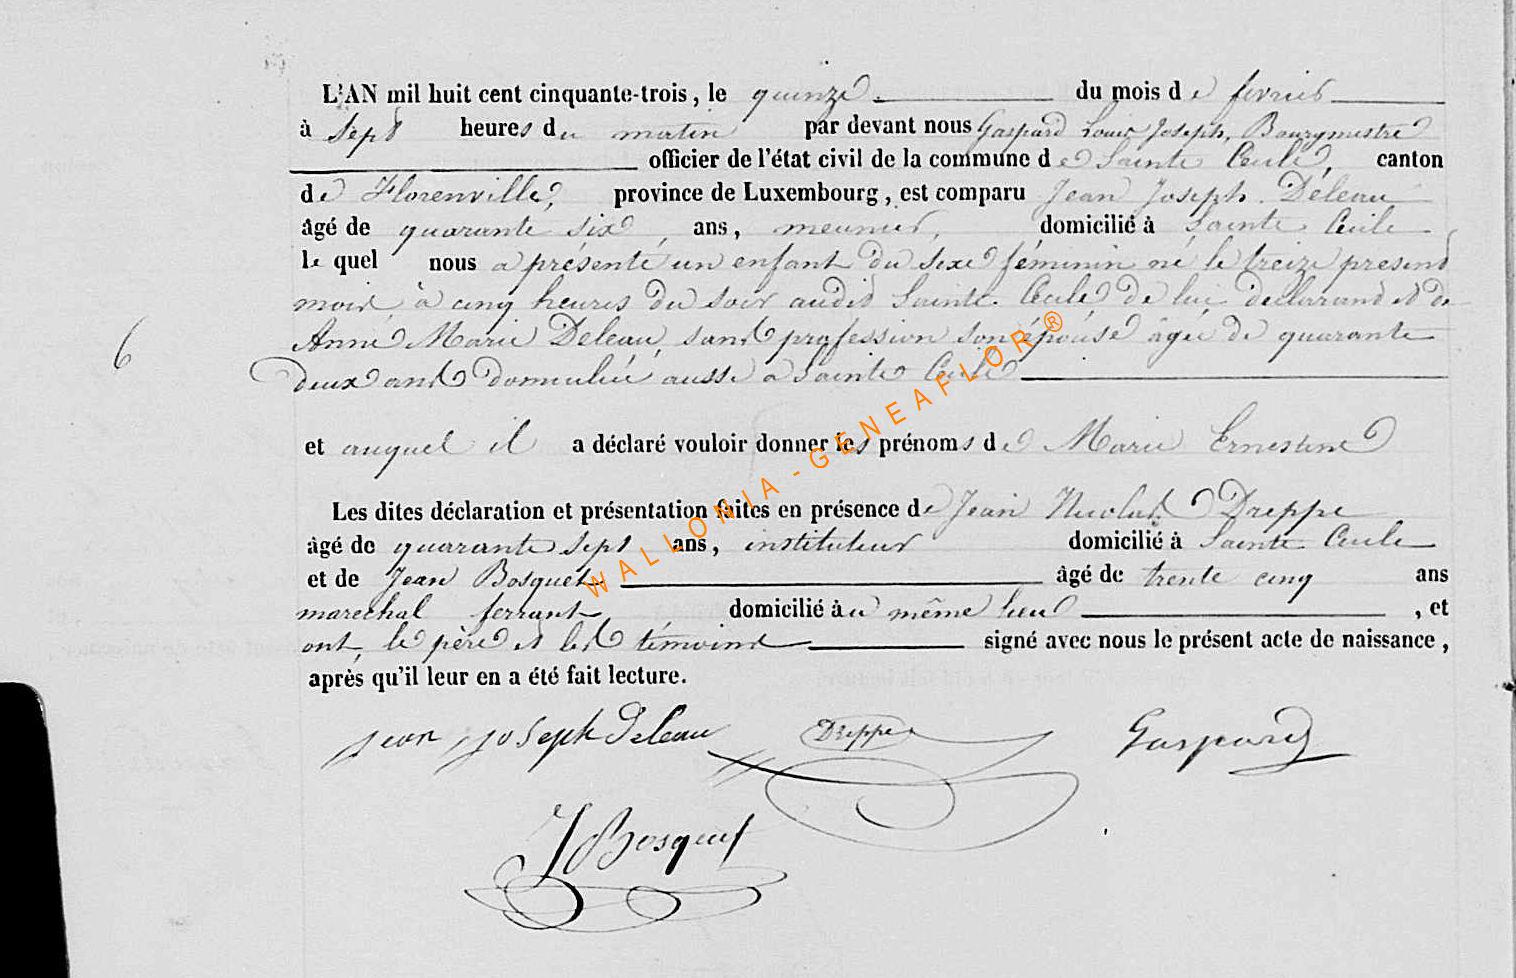 L'AN mil huit cent cinquante-trois, le quinze du mois de fevrier
à sept heures du matin par devant nous Gaspard Louis Joseph, Bourgmestre
officier de l'état civil de la commune de Sainte Cecile, canton
de Florenville, province de Luxembourg, est comparu Jean Joseph Deleau
âgé de quarante six ans, meunier, domicilié à Sainte Cecile
le quel nous a présenté un enfant du sexe féminin né le treize present
mois, à cinq heures du soir audit Sainte Cecile de lui declarant et de
Anne Marie Deleau, sans profession son épouse âgée de quarante
deux ans domiciliée aussi à Sainte Cecile
6
et auquel il a déclaré vouloir donner les prénoms de Marie Ernestine
Les dites déclaration et présentation faites en présence de Jean Nicolas Dreppe
âgé de quarante sept ans, instituteur domicilié à Sainte Cecile
et de Jean Bosquet âgé de trente cinq ans
marechal ferrant domicilié au même lieu , et
ont, le père et les témoins signé avec nous le présent acte de naissance,
après qu'il leur en a été fait lecture.
jean joseph deleau Dreppe Gaspard
J Bosquet
WALLONIA - GENEAFLOR ®